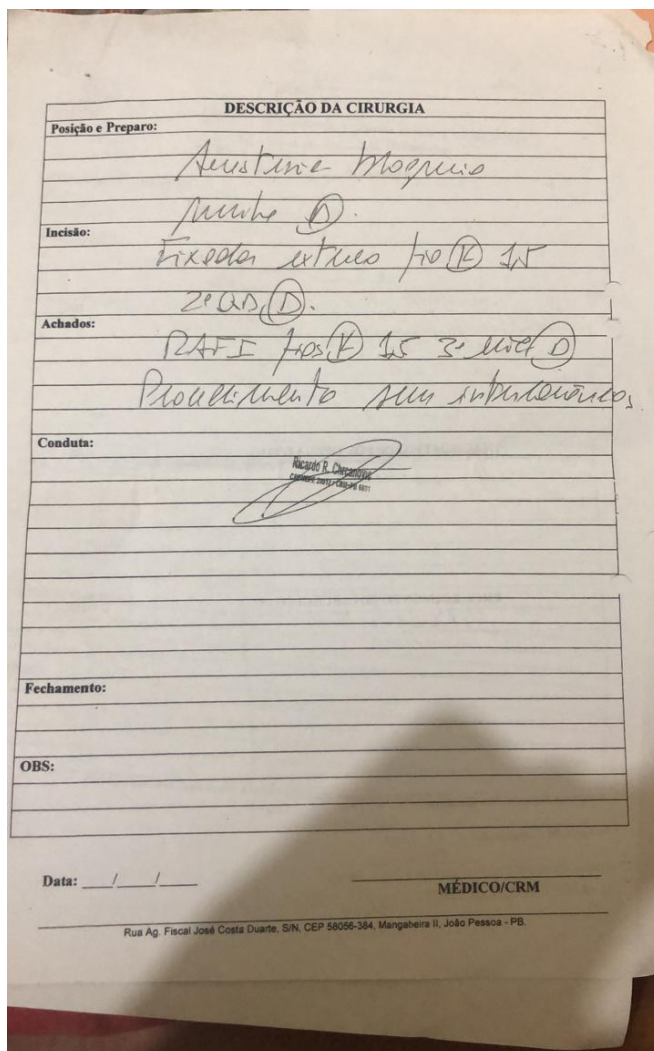 DESCRIÇÃO DA CIRURGIA
Posição e Preparo:
Anestesia bloqueio
punho (D).
Incisão:
Fixador externo fio (K) 1,5
2º QD, (D).
Achados:
RAFI fios (K) 1,5 3º (D)
Procedimento sem intercorrências
Conduta:
Ricardo R.
Fechamento:
OBS:
Data: ___/___/___
MÉDICO/CRM
Rua Ag. Fiscal José Costa Duarte, S/N, CEP 58056-384, Mangabeira II, João Pessoa - PB.